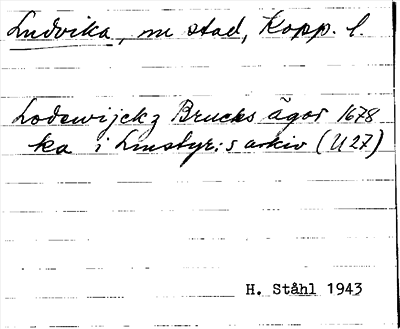 Ludvika, m stad, Kopp. l.
Lodewijckz Brucks ägor 1678
ka i Lmstyr:s arkiv (U 27)
H. Ståhl 1943